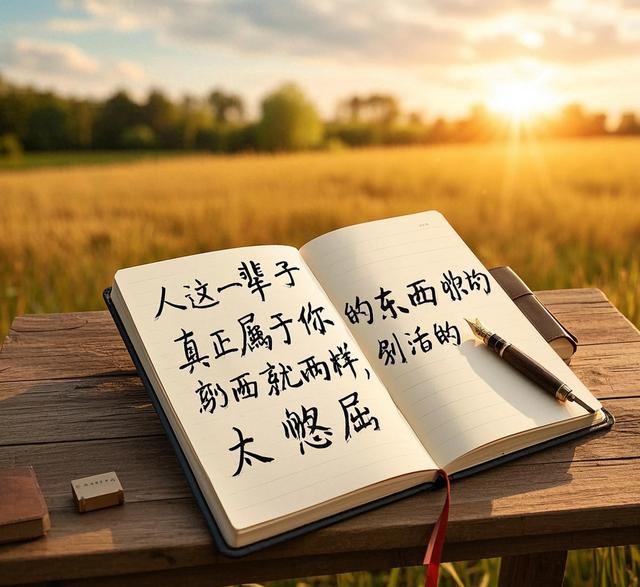 人这一辈子
真正屬于你
西就两样,
太 屈
的东西 的
别活的